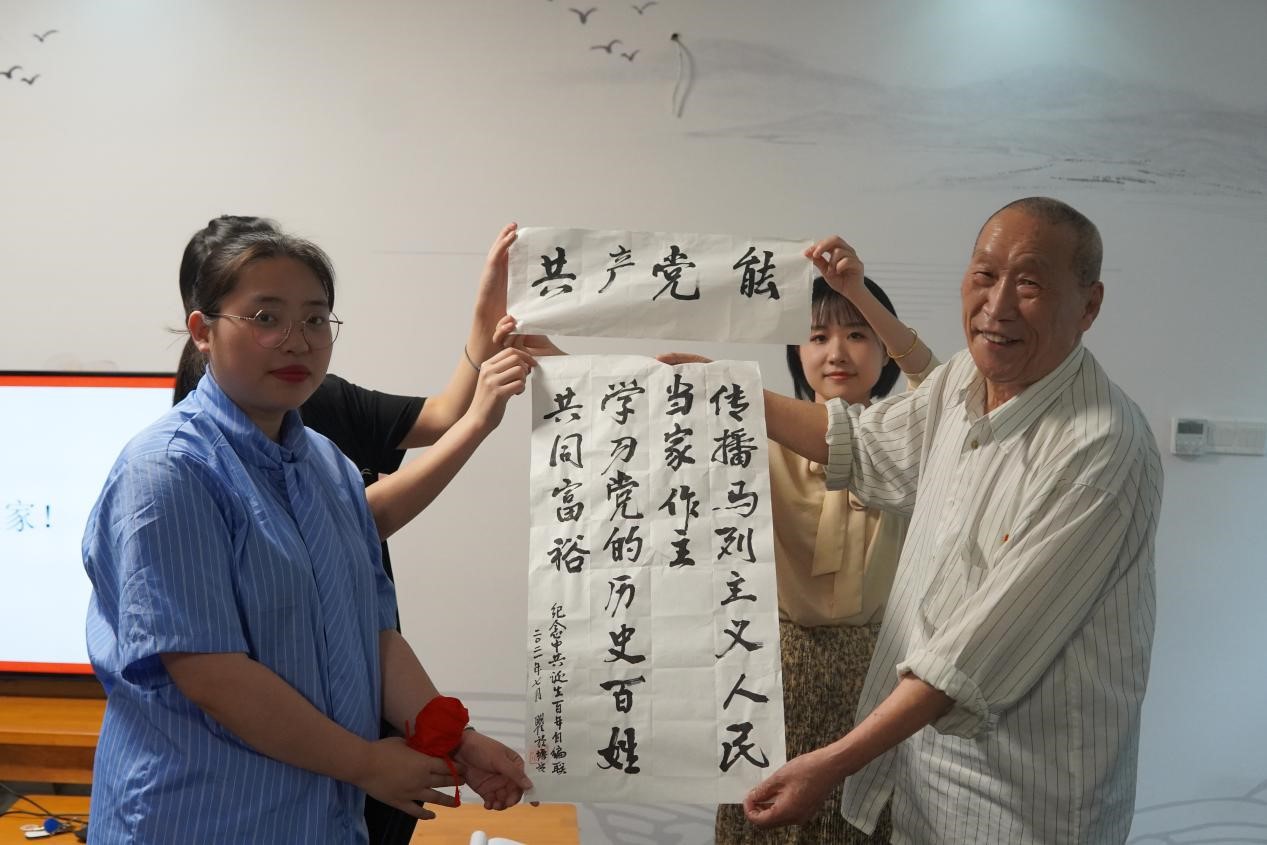 共产党能
传播马列主义人民
当家作主
学习党的历史百姓
共同富裕
纪念中共诞生百年自编联
二〇二一年七月
家!